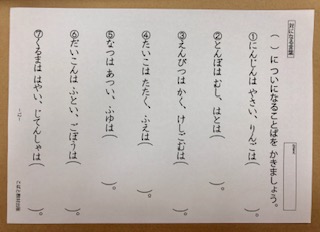 対になる言葉
（　）に ついになることばを かきましょう。
①にんじんは やさい、りんごは（　　　）。
②とんぼは むし、はとは（　　　）。
③えんぴつは かく、けしごむは（　　　）。
④たいこは たたく、ふえは（　　　）。
⑤なつは あつい、ふゆは（　　　）。
⑥だいこんは ふとい、ごぼうは（　　　）。
⑦くるまは はやい、じてんしゃは（　　　）。